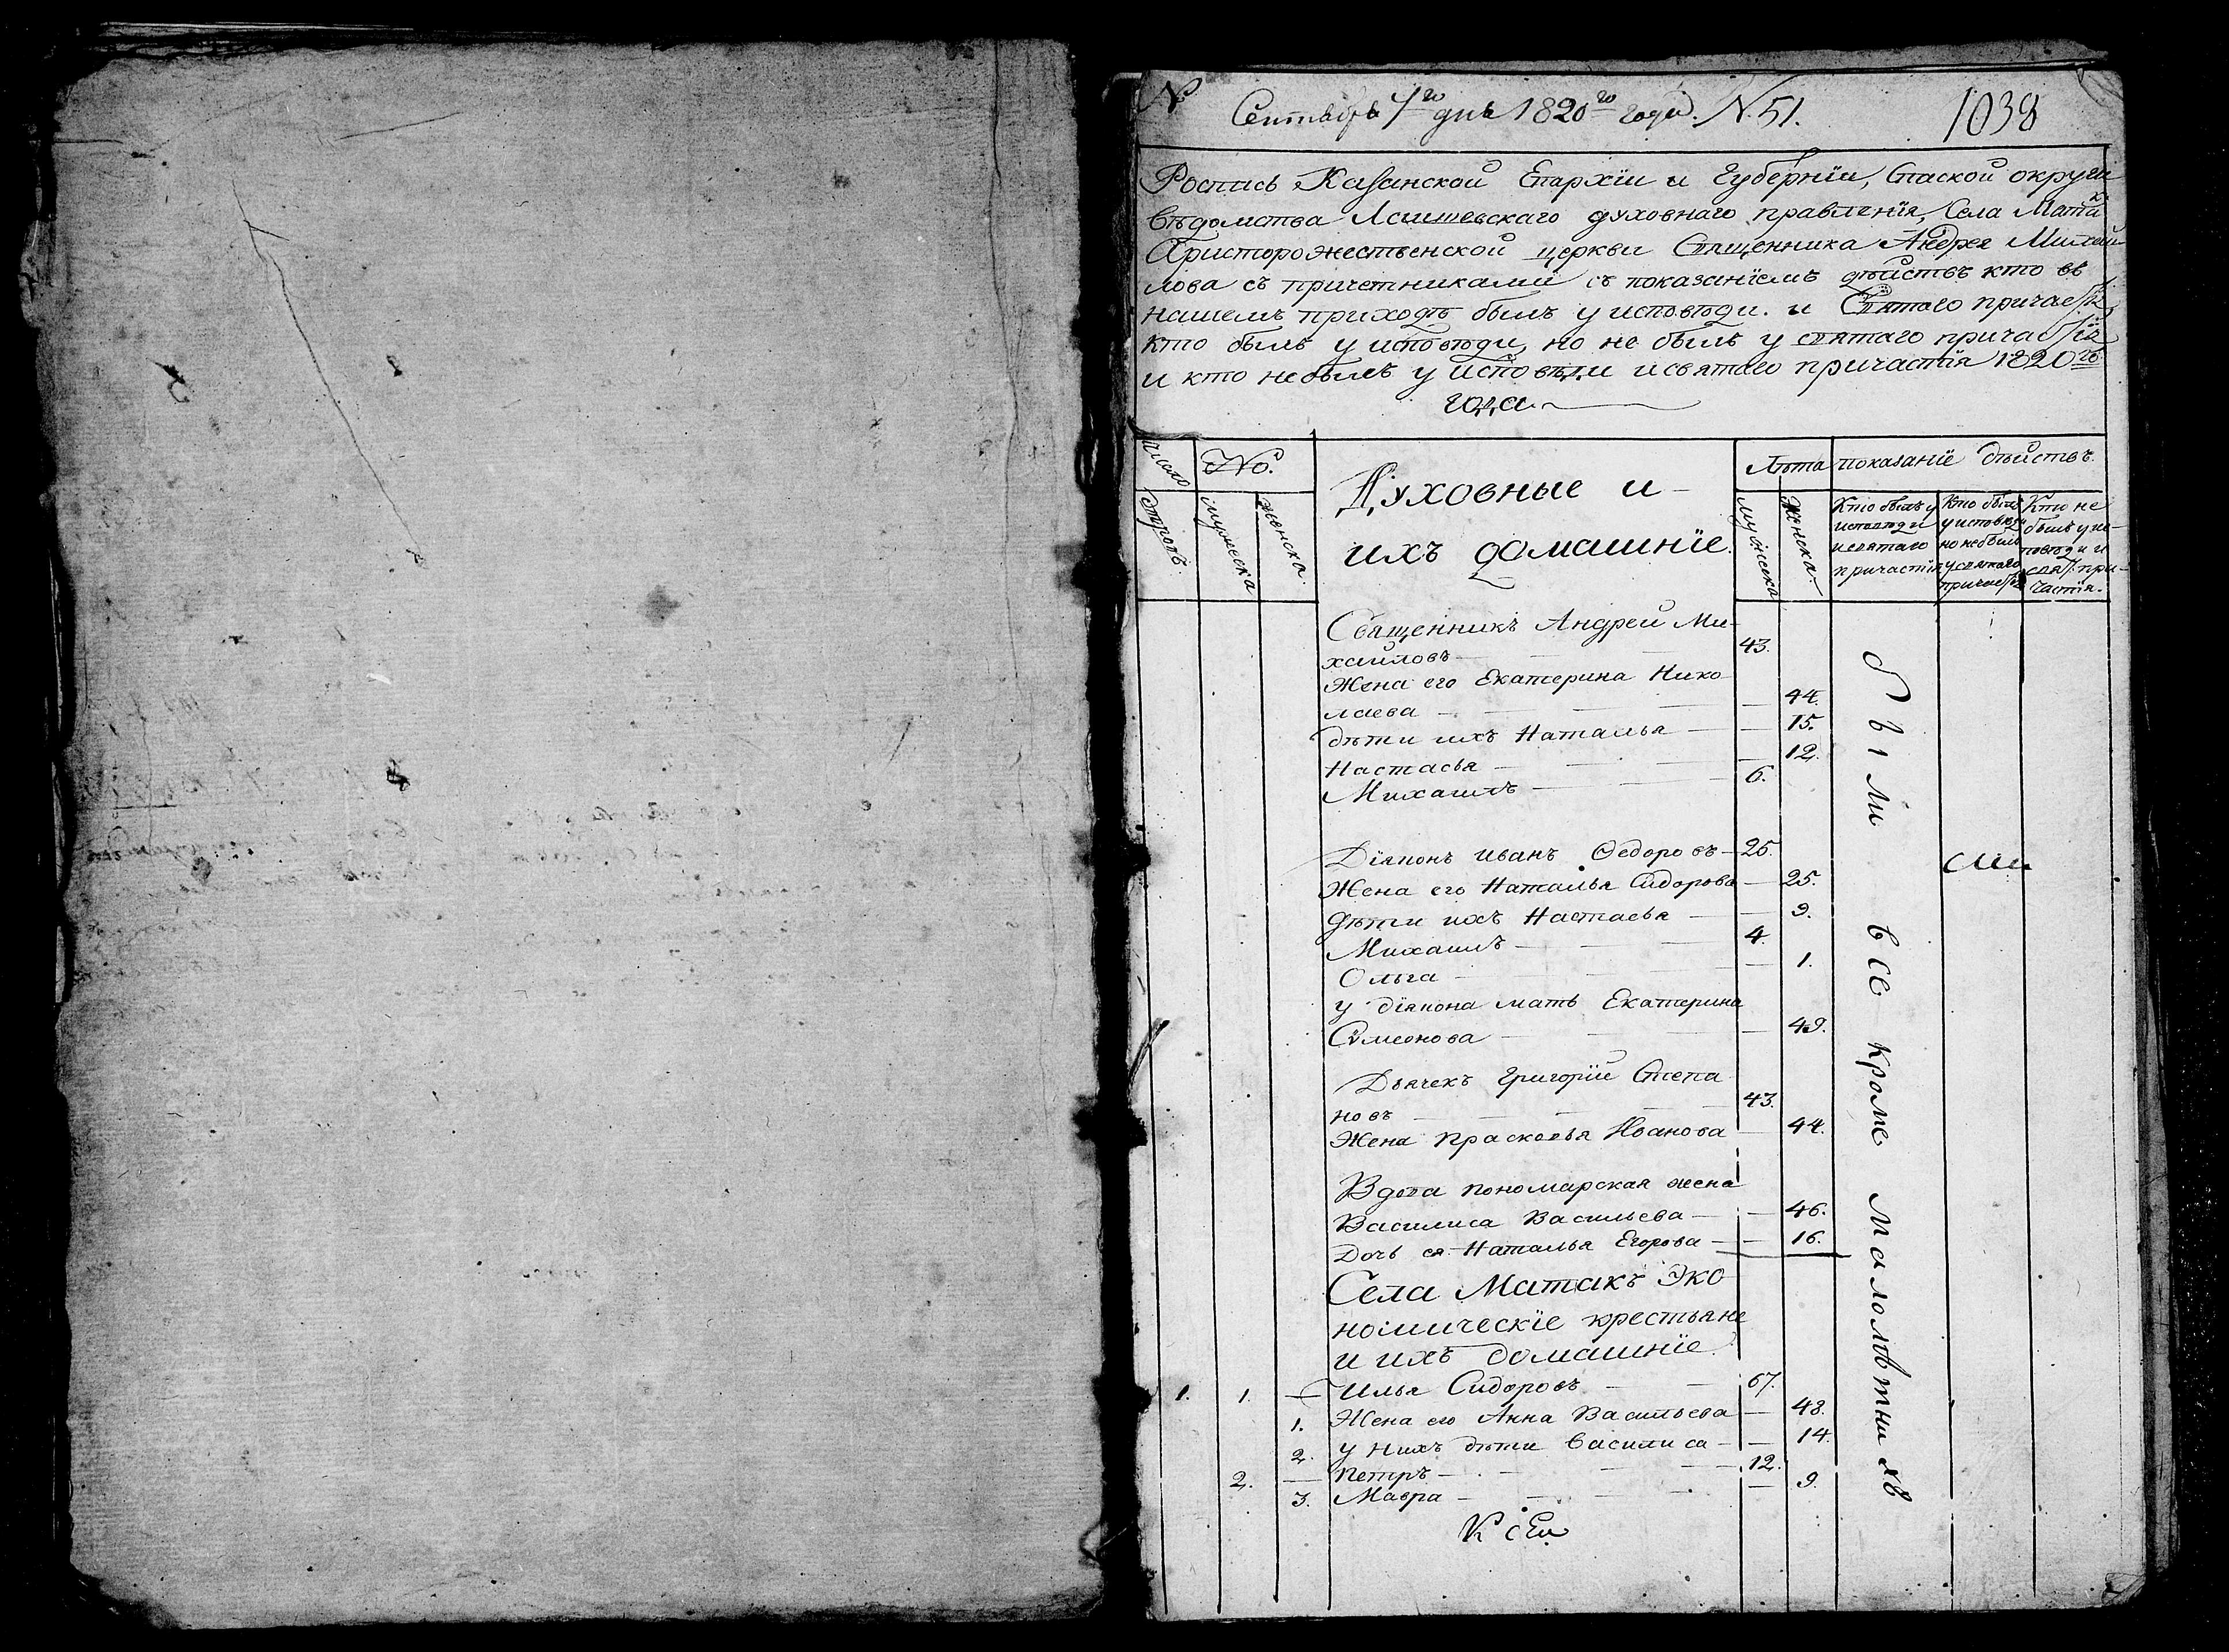 №
Сентября 4го дня 1820го года. N. 51.
1038
Роспись Казанской Епархїи и Губернїи, Спаской округи
вѣдомства Лаишевскаго духовнаго правленїя, Села Матакъ
Христорожественской церкви Священника Андрея Михаи
лова съ причетниками съ показанїемъ дѣйствъ кто въ
нашемъ приходѣ былъ у исповѣди. и Святаго причастїя,
кто былъ у исповѣди, но не былъ у святаго причастїя
и кто небылъ у исповѣди и святаго причастїя 1820го
года.
Число дворовъ
No.
мужеска
женска
Духовные и
ихъ домашнїе.
Лѣта
мужеска
женска
показанїе дѣйствъ.
Кто былъ у
исповѣди
и святаго
причастїя
Кто былъ
у исповѣди
но небылъ
у святаго
причастїя
Кто не
былъ у ис-
повѣди и
свят. при-
частїя.
Священникъ Андрей Ми-
хайловъ — 43.
Жена его Екатерина Нико
лаева — 44.
дѣти ихъ Наталья — 15.
Настасья — 12.
Михаилъ — 6.
Дїяконъ иванъ Ѳедоровъ — 25.
Жена его Наталья Сидорова — 25.
дѣти ихъ Настасья — 9.
Михаилъ — 4.
Ольга — 1.
у дїякона мать Екатерина
Сѵмеонова — 49.
Дьячекъ Григорїй Степа
новъ — 43.
Жена прасковья Иванова — 44.
Вдова пономарская жена
Василиса Васильева — 46.
Дочь ея Наталья Егорова — 16.
Села Матакъ Эко
номическїе крестьяне
и ихъ домашнїе.
1. 1. — Илья Сидоровъ — 67.
1. Жена его Анна Васильева — 48.
2. у нихъ дѣти василиса — 14.
2. — петръ — 12.
3. Мавра — 9.
были все кроме малолѣтнихъ
К сей